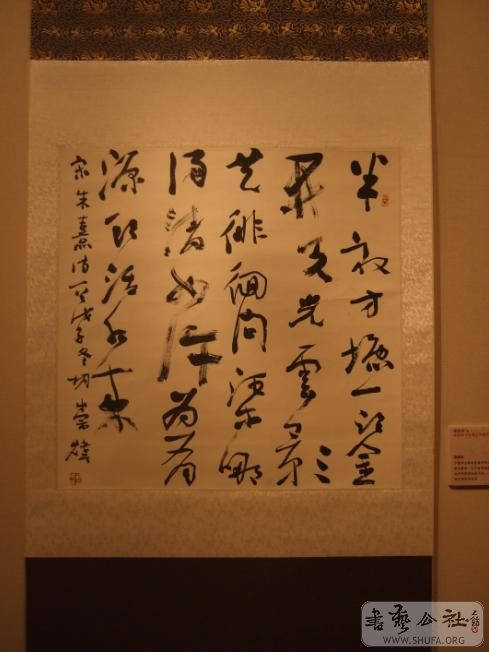 半畝方塘一鑑
開天光雲影
共徘徊問渠那
得清如許為有
源頭活水来
宋朱熹詩戊子冬初崇
書藝公社
WWW.SHUFA.ORG